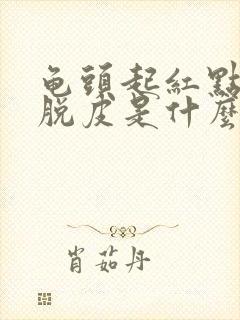 龟頭起紅點
脫皮是什麼
肖茹丹